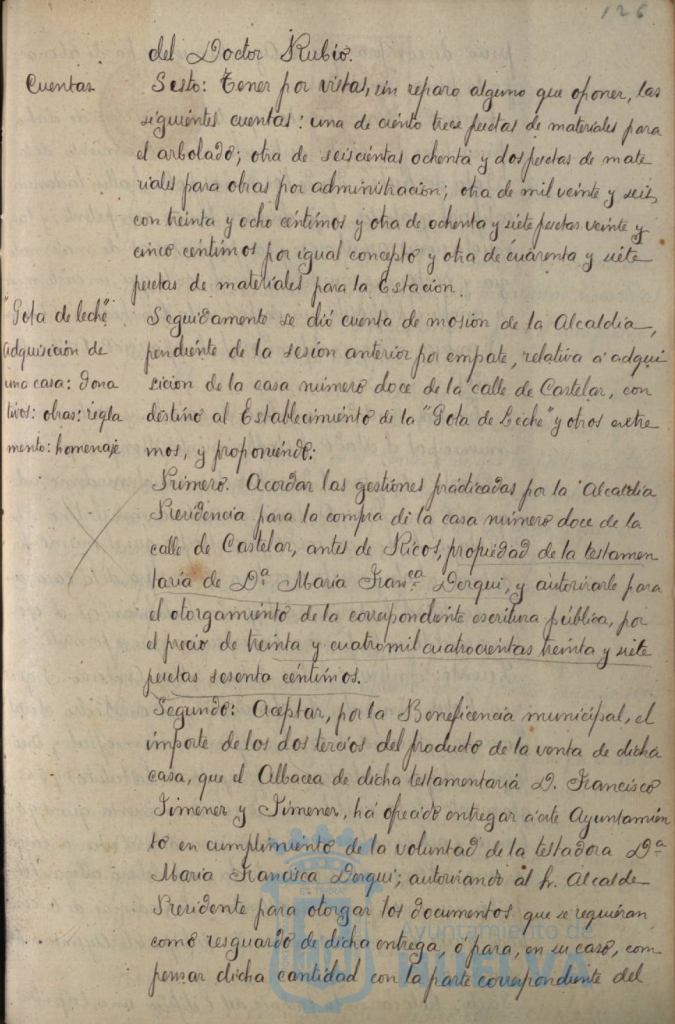 126
del Doctor Rubio.
Cuentas.
Sesto: Tener por vistas, sin reparo alguno que oponer, las
siguientes cuentas: una de ciento trece pesetas de materiales para
el arbolado; otra de seiscientas ochenta y dos pesetas de mate
riales para obras por administracion; otra de mil veinte y seis,
con treinta y ocho centimos y otra de ochenta y siete pesetas veinte y
cinco centimos por igual concepto y otra de cuarenta y siete
pesetas de materiales para la Estacion.
"Gota de leche".
adquisición de
una casa: dona
tivos: obras: regla
mento: homenaje
Seguidamente se dió cuenta de mosion de la Alcaldia,
pendiente de la sesion anterior por empate, relativa á adqui
sicion de la casa número doce de la calle de Castelar, con
destino al Establecimiento de la "Gota de Leche" y otros extre
mos, y proponiendo:
Primero. Acordar las gestiones practicadas por la Alcaldia
Presidencia para la compra de la casa número doce de la
calle de Castelar, antes de Ricos, propiedad de la testamen
taria de Dª Maria Franca Dergui, y autorizarle para
el otorgamiento de la correspondiente escritura pública, por
el precio de treinta y cuatromil cuatrocientas treinta y siete
pesetas sesenta céntimos.
Segundo: Aceptar, por la Beneficencia municipal, el
importe de los dos tercios del producto de la venta de dicha
casa, que el Albacea de dicha testamentaria D. Francisco
Jimenez y Jimenez, há ofrecido entregar á este Ayuntamien
to en cumplimiento de la voluntad de la testadora Dª
Maria Francisca Dergui; autorizando al Sr. Alcalde
Presidente para otorgar los documentos que se requieran
como resguardo de dicha entrega, ó para, en su caso, com
pensar dicha cantidad con la parte correspondiente del
Ayuntamiento de
HUELVA